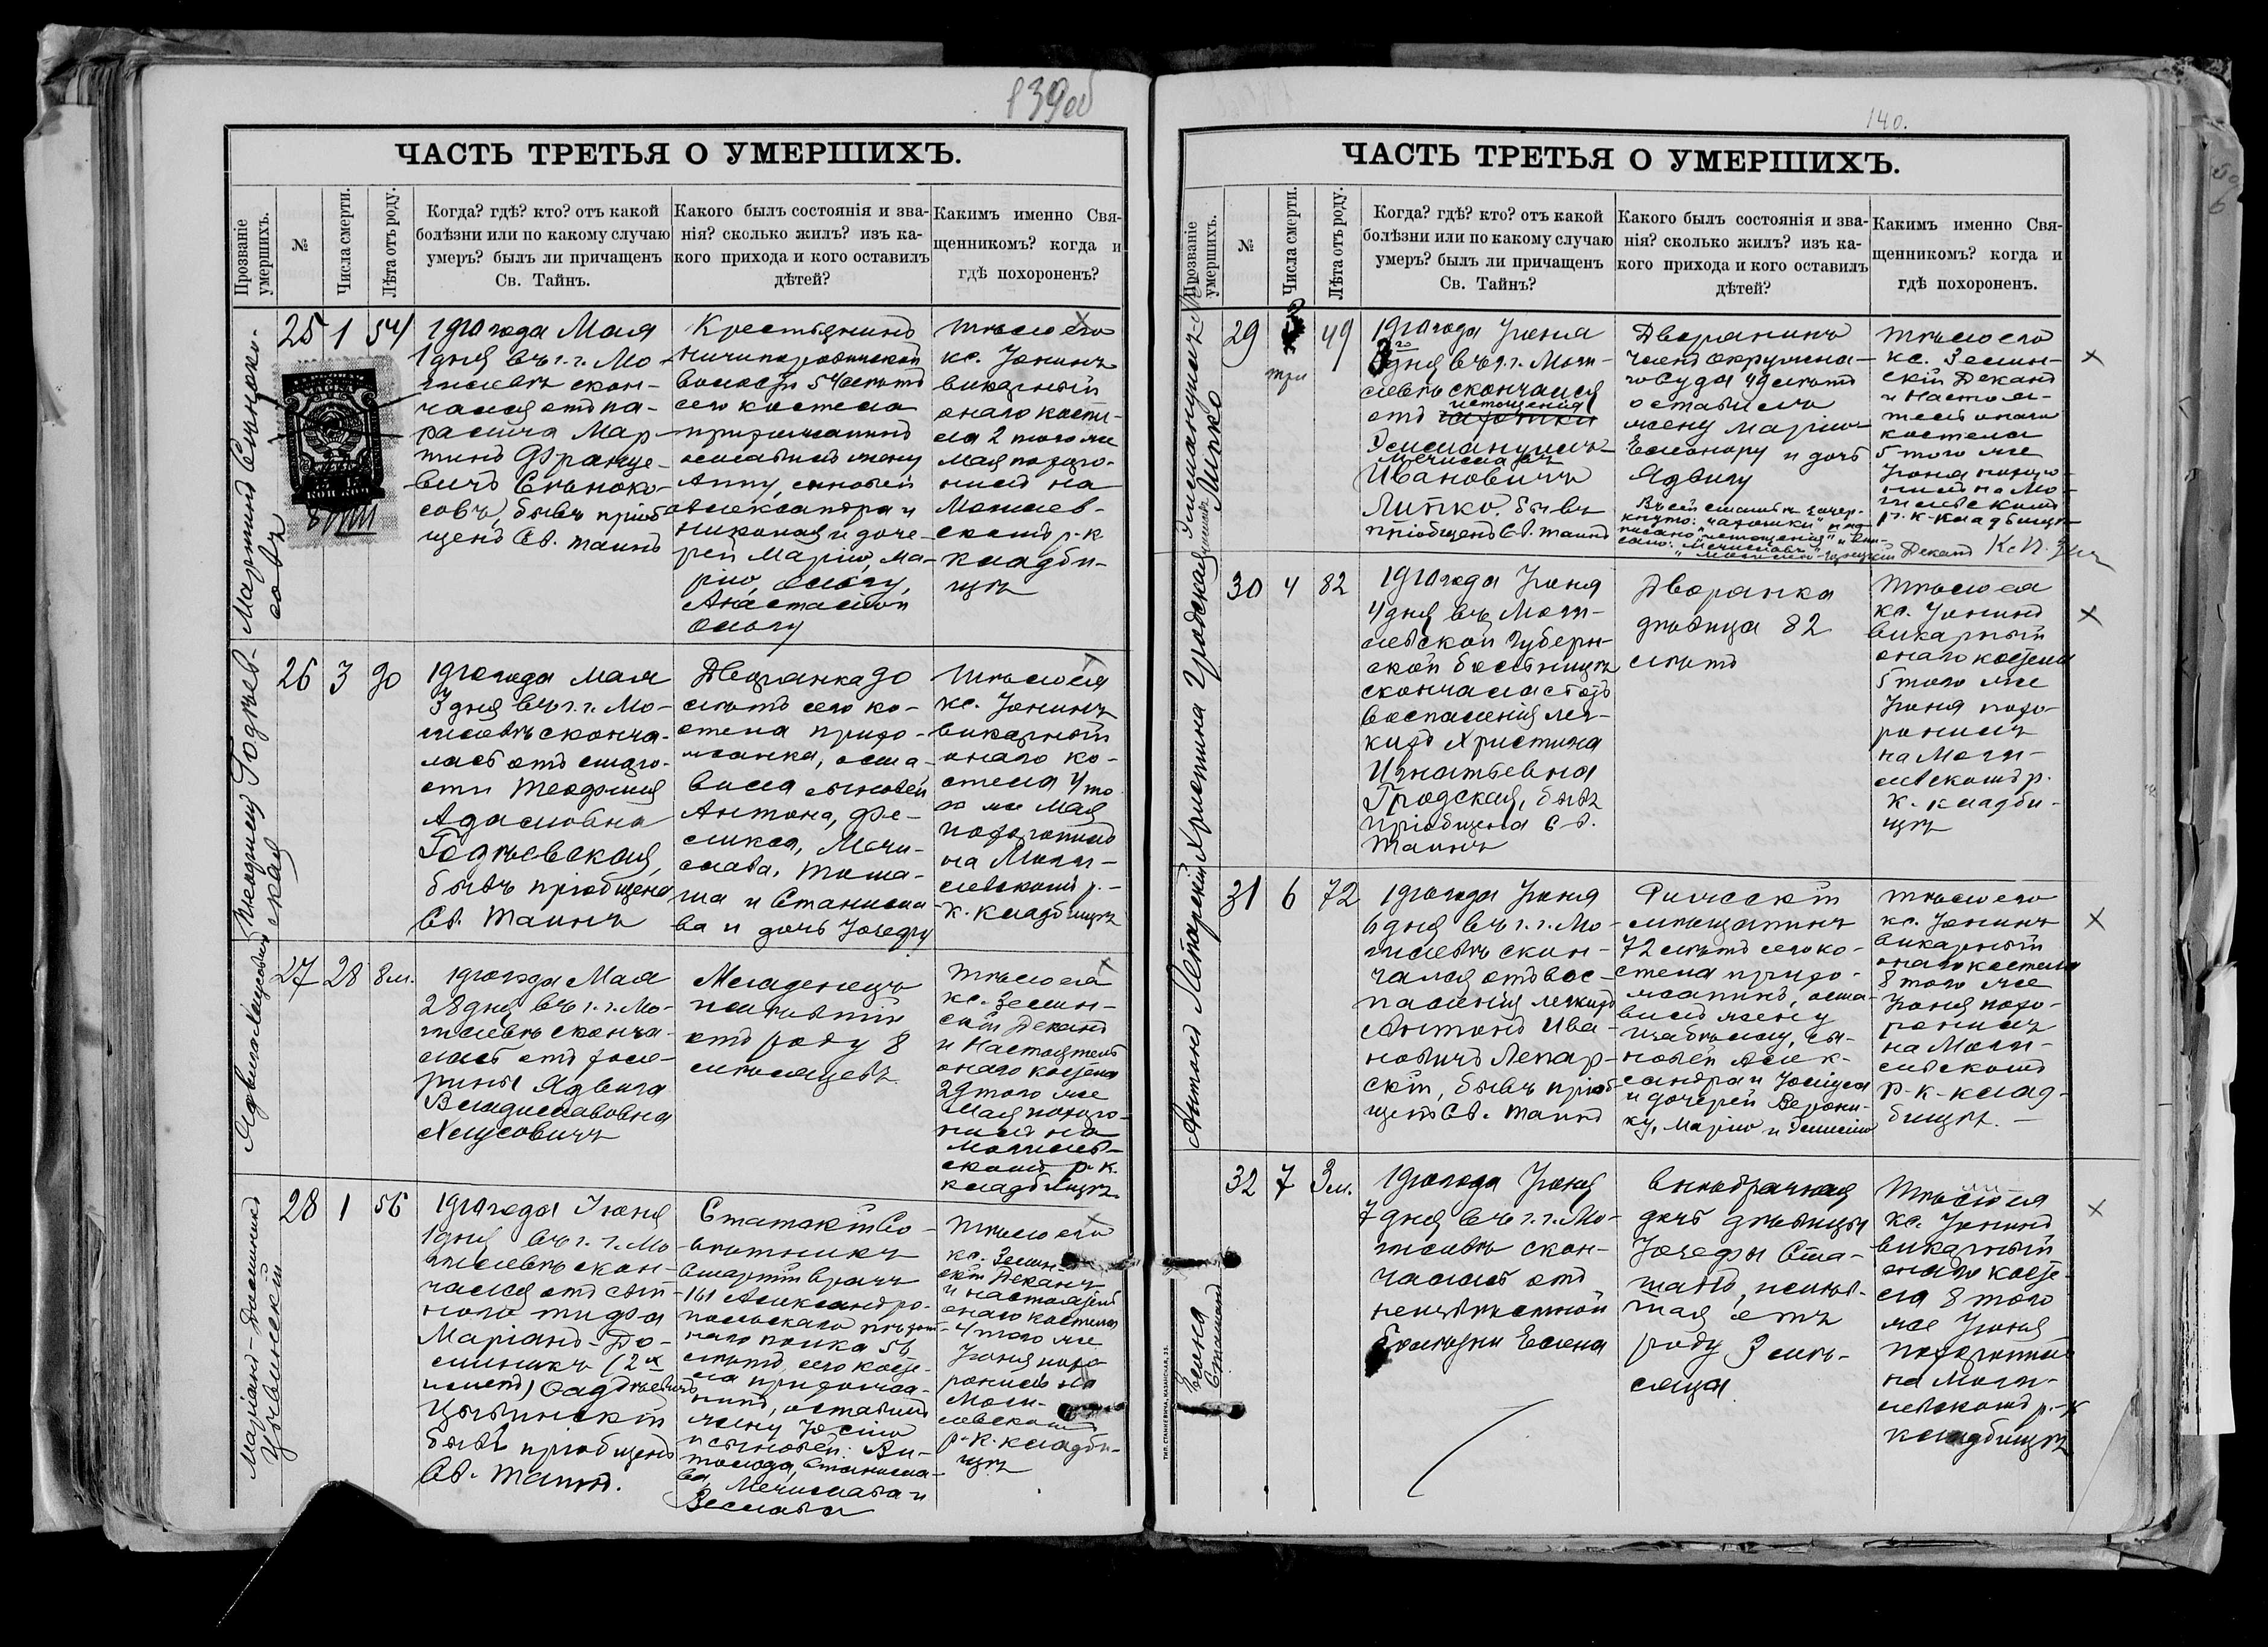 139 об
ЧАСТЬ ТРЕТЬЯ О УМЕРШИХЪ.
Прозваніе умершихъ.
№
Числа смерти.
Лѣта отъ роду.
Когда? гдѣ? кто? отъ какой
болѣзни или по какому случаю
умеръ? былъ ли причащенъ
Св. Тайнъ.
Какого былъ состоянія и зва-
нія? сколько жилъ? изъ ка-
кого прихода и кого оставилъ
дѣтей?
Какимъ именно Свя-
щенникомъ? когда и
гдѣ похороненъ?
25
1
54
1910 года Мая
1 дня въ г. г. Мо-
гилевѣ скон-
чался отъ па-
ралича Мар-
тинъ Франце-
вичъ
бывъ пріоб-
щенъ Св. Таинъ
Крестьянинъ
волости 54 лѣтъ
сего костела
прихожанинъ
оставилъ жену
Анну, сыновей
Александра и
Николая и доче-
рей Марію, Ма-
рію, Ольгу,
Анастасію и
Ольгу
Тѣло его
кс. Іонинъ
викарный
онаго косте-
ла 2 того же
Мая похоро-
нилъ на
Могилев-
скомъ р.-к
кладби-
щѣ
26
3
90
1910 года Мая
3 дня въ г. г. Мо-
гилевѣ сконча-
лась отъ старо-
сти Теофилія
Адамовна
Годлевская,
бывъ пріобщена
Св. Таинъ
Дворянка 90
лѣтъ сего ко-
стела прихо-
жанка, оста-
вила сыновей
Антона, Фе-
ликса, Мечи-
слава, Тома-
ша и Станисла-
ва и дочь Юзефу
Тѣло ея
кс. Іонинъ
викарный
онаго ко-
стела 4 то-
го же Мая
похоронилъ
на Моги-
левскомъ р.-
к. кладбищѣ
27
28
8 м.
1910 года Мая
28 дня въ г. г. Мо-
гилевѣ сконча-
лась отъ холе-
рины Ядвига
Владиславовна
Младенецъ
отъ роду 8
мѣсяцевъ.
Тѣло ея
кс. Зелин-
скій Деканъ
и Настоятель
онаго костела
29 того же
Мая похоро-
нилъ на
Могилев-
скомъ р.-к.
кладбищѣ
28
1
56
1910 года Іюня
1 дня въ г. г. Мо-
гилевѣ скон-
чался отъ сып-
ного тифа
Маріанъ-До-
миникъ (2х
именъ) Фаддѣевичъ
Цывинскій
бывъ пріобщенъ
Св. Таинъ.
Статскій Со-
вѣтникъ
Старшій врачъ
161 Александро-
польскаго пѣхот-
наго полка 56
лѣтъ, сего косте-
ла прихожа-
нинъ, оставилъ
жену Юлію
и сыновей: Ви-
тольда, Станисла-
ва, Мечислава и
Веслава
Тѣло его
кс. Зелин-
скій Деканъ
и настоятель
онаго костела
4 того же
Іюня похо-
ронилъ на
Моги-
левскомъ
р.-к. кладби-
щѣ
140.
ЧАСТЬ ТРЕТЬЯ О УМЕРШИХЪ.
Прозваніе умершихъ.
№
Числа смерти.
Лѣта отъ роду.
Когда? гдѣ? кто? отъ какой
болѣзни или по какому случаю
умеръ? былъ ли причащенъ
Св. Тайнъ?
Какого былъ состоянія и зва-
нія? сколько жилъ? изъ ка-
кого прихода и кого оставилъ
дѣтей?
Какимъ именно Свя-
щенникомъ? когда и
гдѣ похороненъ.
29
три
49
1910 года Іюня
3го дня въ г. г. Моги-
левѣ скончался
отъ чахотки
истощенія
Эммануилъ-
Мечиславъ
Ивановичъ
Липко, бывъ
пріобщенъ Св. Таинъ
Дворянинъ
членъ окружна-
го суда 49 лѣтъ
оставилъ
жену Марію-
Елеонору и дочь
Ядвигу
Въ сей статьѣ зачер-
кнуто: "чахотки" и над-
писано "истощенія" и впи-
сано: "Мечиславъ"
Деканъ
Тѣло его
кс. Зелин-
скій Деканъ
и Настоя-
тель онаго
костела
5 того же
Іюня похоро-
нилъ на Мо-
гилевскомъ
р.-к. кладбищѣ
30
4
82
1910 года Іюня
4 дня въ Моги-
левской Губерн-
ской больницѣ
скончалась отъ
воспаленія лег-
кихъ Христина
Игнатьевна
Гродская, бывъ
пріобщена Св.
Таинъ
Дворянка
дѣвица 82
лѣтъ
Тѣло ея
кс. Іонинъ
викарный
онаго костела
5 того же
Іюня похо-
ронилъ
на Моги-
левскомъ р.
к. кладби-
щѣ
31
6
72
1910 года Іюня
6 дня въ г. г. Мо-
гилевѣ скон-
чался отъ вос-
паленія легкихъ
Антонъ Ива-
новичъ Лепар-
скій, бывъ пріоб-
щенъ Св. Таинъ
Рижскій
мѣщанинъ
72 лѣтъ сего ко-
стела прихо-
жанинъ, оста-
вилъ жену
Изабеллу, сы-
новей Алек-
сандра и Юліуса
и дочерей Верони-
ку, Марію и Эмилію
Тѣло его
кс. Іонинъ
викарный
онаго костела
8 того же
Іюня похо-
ронилъ
на Моги-
левскомъ
р.-к. клад-
бищѣ.
32
7
3 м.
1910 года Іюня
7 дня въ г. г. Мо-
гилевѣ скон-
чалась отъ
неизвѣстной
болѣзни Елена
Внѣбрачная
дочь дѣвицы
Юзефы
роду 3 мѣ-
сяца
Тѣло ея
кс. Іонинъ
викарный
онаго косте-
ла 8 того
же Іюня
похоронилъ
на Моги-
левскомъ р.-к
кладбищѣ